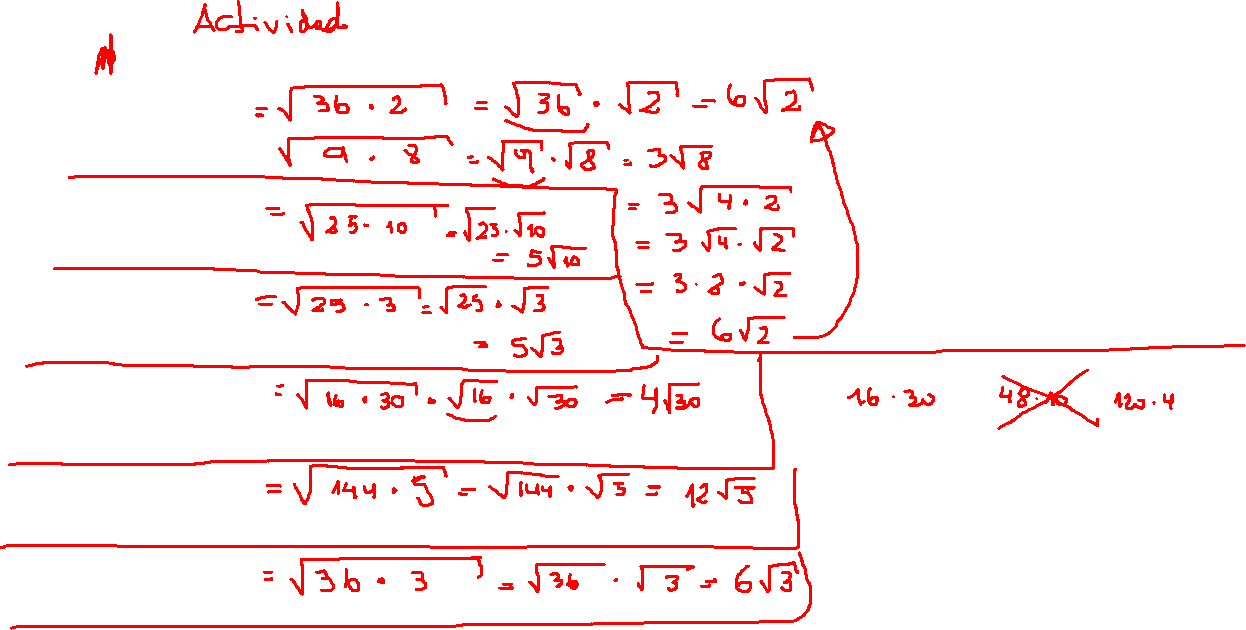 Actividad
= √36 · 2 = √36 · √2 = 6√2
√9 · 8 = √9 · √8 = 3√8
= 3√4 · 2
= 3√4 · √2
= 3 · 2 · √2
= 6√2
= √25 · 10 = √25 · √10
= 5√10
= √25 · 3 = √25 · √3
= 5√3
= √16 · 30 · √16 · √30 = 4√30
16 · 30 48 · 10 120 · 4
= √144 · 5 = √144 · √5 = 12√5
= √36 · 3 = √36 · √3 = 6√3